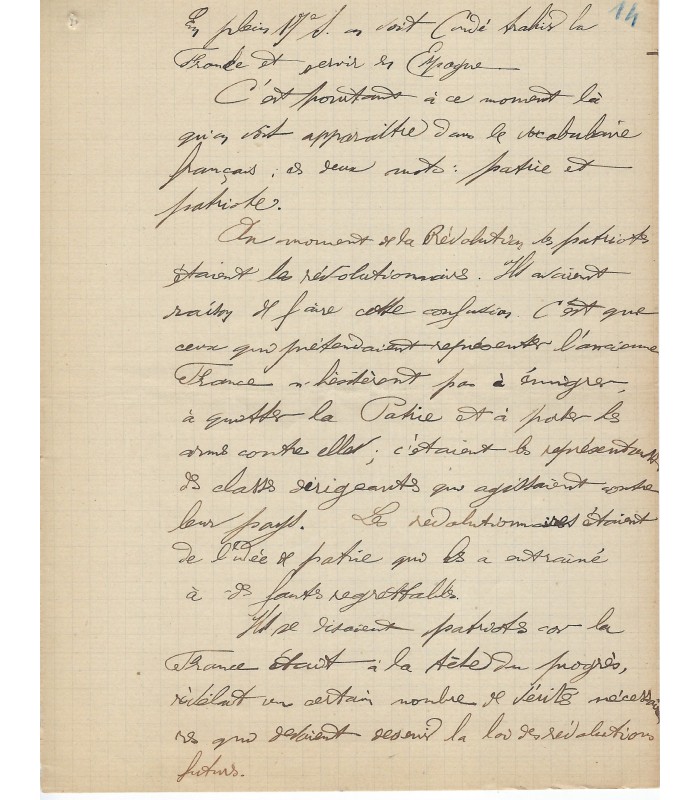 14
En plein 17e S. on voit Condé trahir la
France et servir en Espagne
C'est pourtant à ce moment là
qu'on voit apparaître dans le vocabulaire
français, ces deux mots : patrie et
patriote.
Au moment de la Révolution, les patriotes
étaient les révolutionnaires. Ils avaient
raison de faire cette confusion. C'est que
ceux qui prétendaient représenter l'ancienne
France n'hésitèrent pas à émigrer,
à quitter la Patrie et à porter les
armes contre elle ; c'étaient les représentants
des classes dirigeantes qui agissaient contre
leur pays. Les révolutionnaires étaient
de l'idée de patrie qui les a entraîné
à des fautes regrettables.
Ils se disaient patriotes car la
France était à la tête du progrès,
révélant un certain nombre de vérités nécessai
res qui devaient devenir la loi des révolutions
futures.